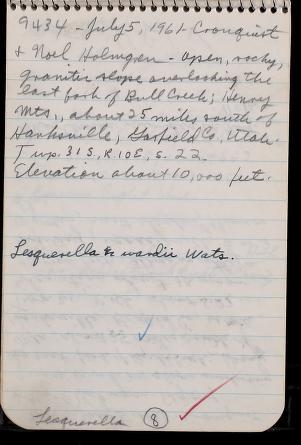 9434 - July 5, 1961 - Cronquist
& Noel Holmgren - open, rocky,
granitic slope overlooking the
east fork of Bull Creek; Henry
Mts., about 25 miles south of
Hanksville, Garfield Co., Utah.
Twp. 31 S, R. 10 E, S. 22.
Elevation about 10,000 feet.
Lesquerella wardii Wats.
Lesquerella
8